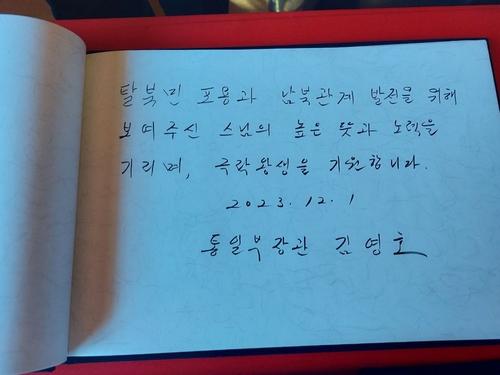 탈북민 포용과 남북관계 발전을 위해
보여주신 스님의 높은 뜻과 노력을
기리며, 극락왕생을 기원합니다.
2023. 12. 1
통일부장관 김영호